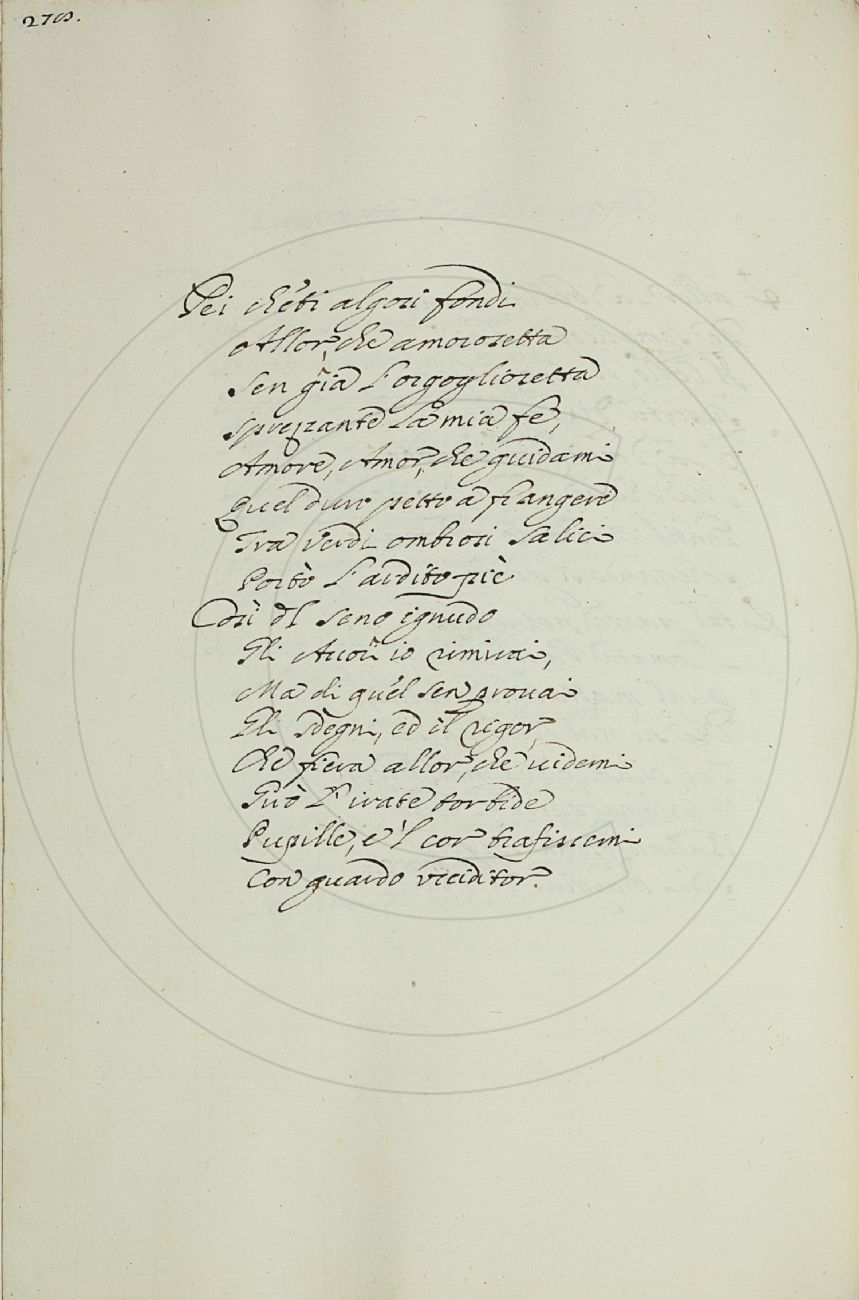 278.
Pei cheti algosi fondi
Allor, che amorosetta
Sen gìa l'orgogliosetta
Sprezzante la mia fe,
Amore, Amor, che guidami
Quel duro petto a frangere
Tra verdi ombrosi salici
Portò l'ardito piè
Così del seno ignudo
Gli Avori io rimirai,
Ma di quel sen provai
Gli sdegni, ed il rigor,
Che fiera allor, che uidemi
Girò l'irate torbide
Pupille, e 'l cor trafissemi
Con guardo vcciditor.